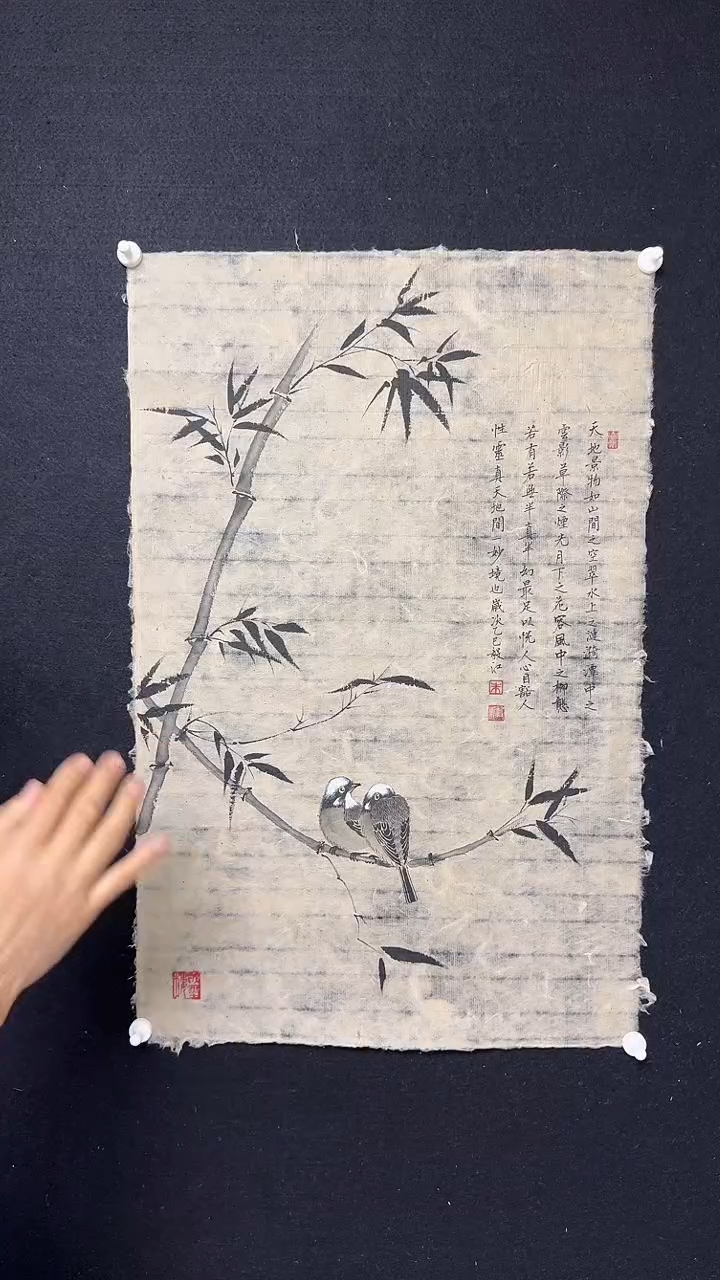 天地景物如山間之空翠水上之漣漪潭中之
雲影草際之煙光月下之花容風中之柳態
若有若無半真半幻最足以悅人心目豁人
性靈真天地間一妙境也歲次乙巳江
朱